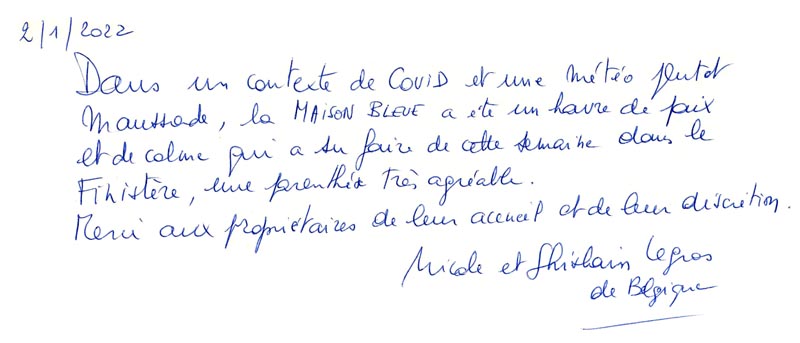 2/1/2022
Dans un contexte de COVID et une météo plutot
maussade, la MAISON BLEUE a été un havre de paix
et de calme qui a su faire de cette semaine dans le
Finistère, une parenthèse très agréable.
Merci aux propriétaires de leur accueil et de leur discrétion.
Nicole et Ghislain Legros
de Belgique